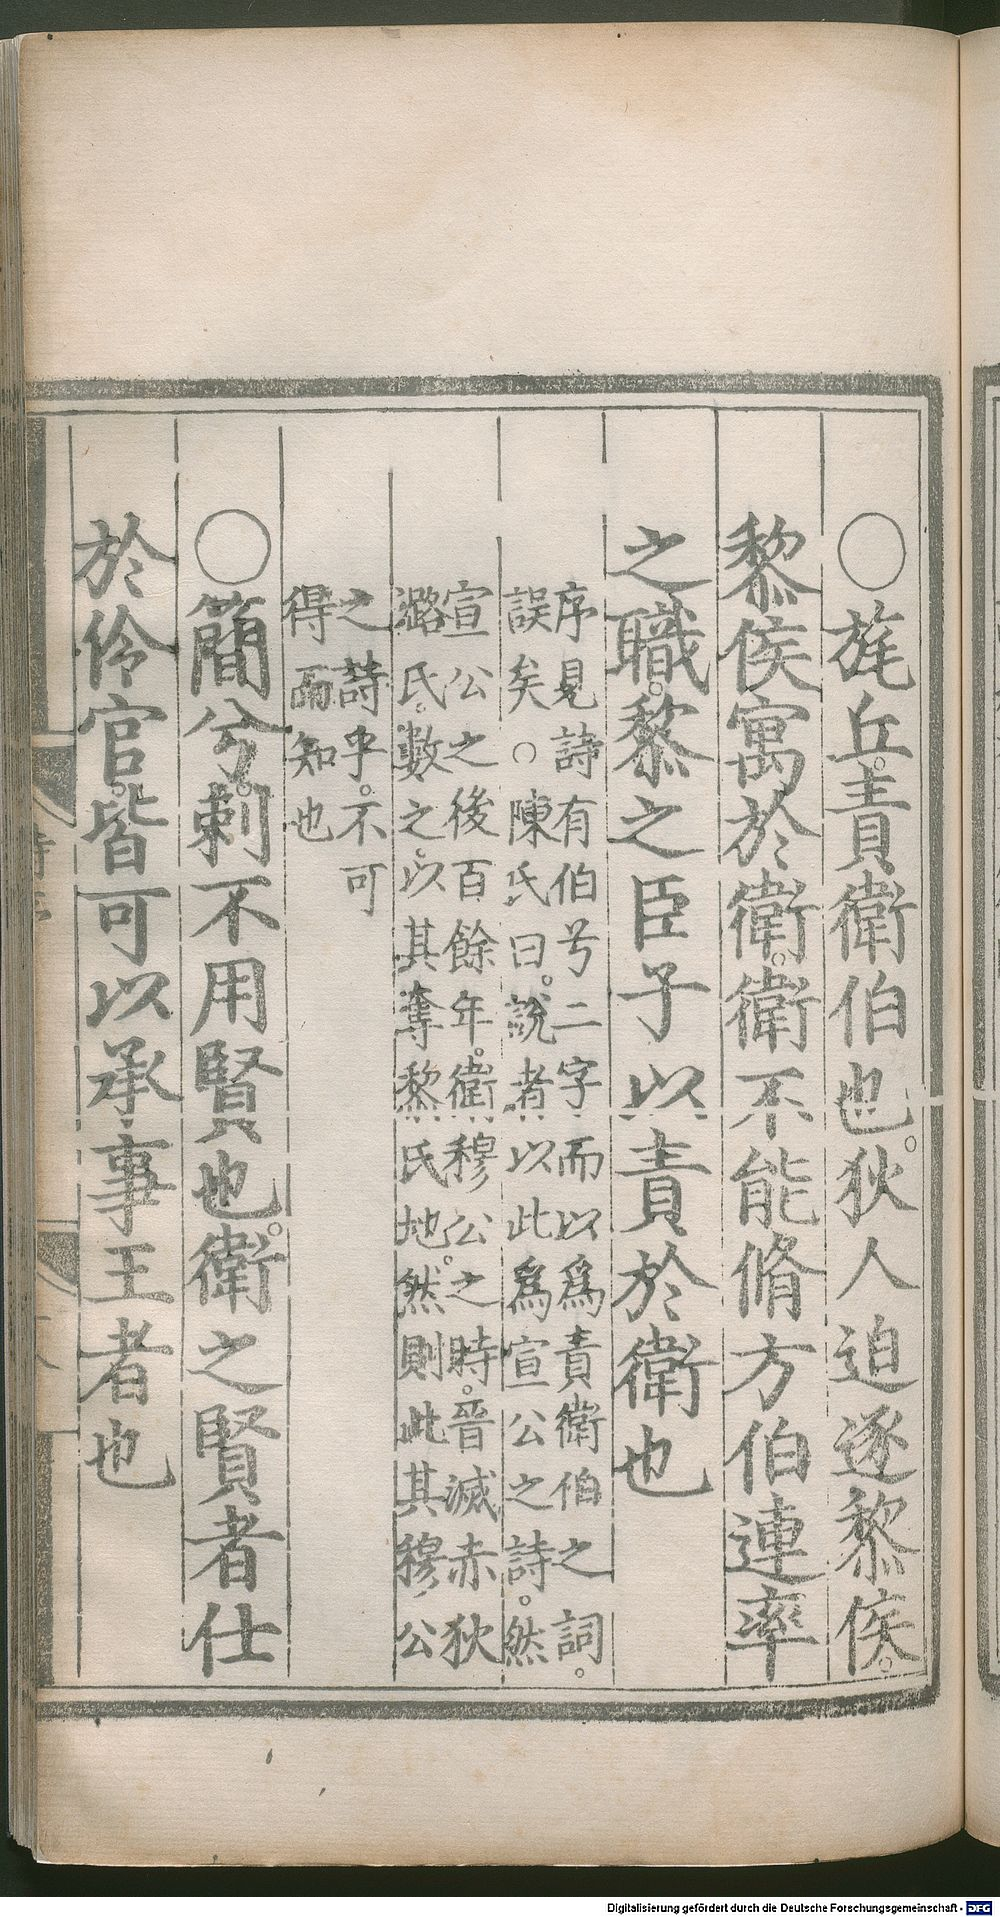 ○旄丘。責衛伯也。狄人迫逐黎侯。
黎侯寓於衛。衛不能脩方伯連率
之職。黎之臣子以責於衛也
序見詩有伯兮二字而以爲責衛伯之詞。
誤矣○陳氏曰。說者以此爲宣公之詩。然
宣公之後百餘年。衛穆公之時。晉滅赤狄
潞氏。數之。以其奪黎氏地。然則此其穆公
之詩乎。不可
得而知也
○簡兮。刺不用賢也。衛之賢者仕
於伶官。皆可以承事王者也
Digitalisierung gefördert durch die Deutsche Forschungsgemeinschaft - DFG